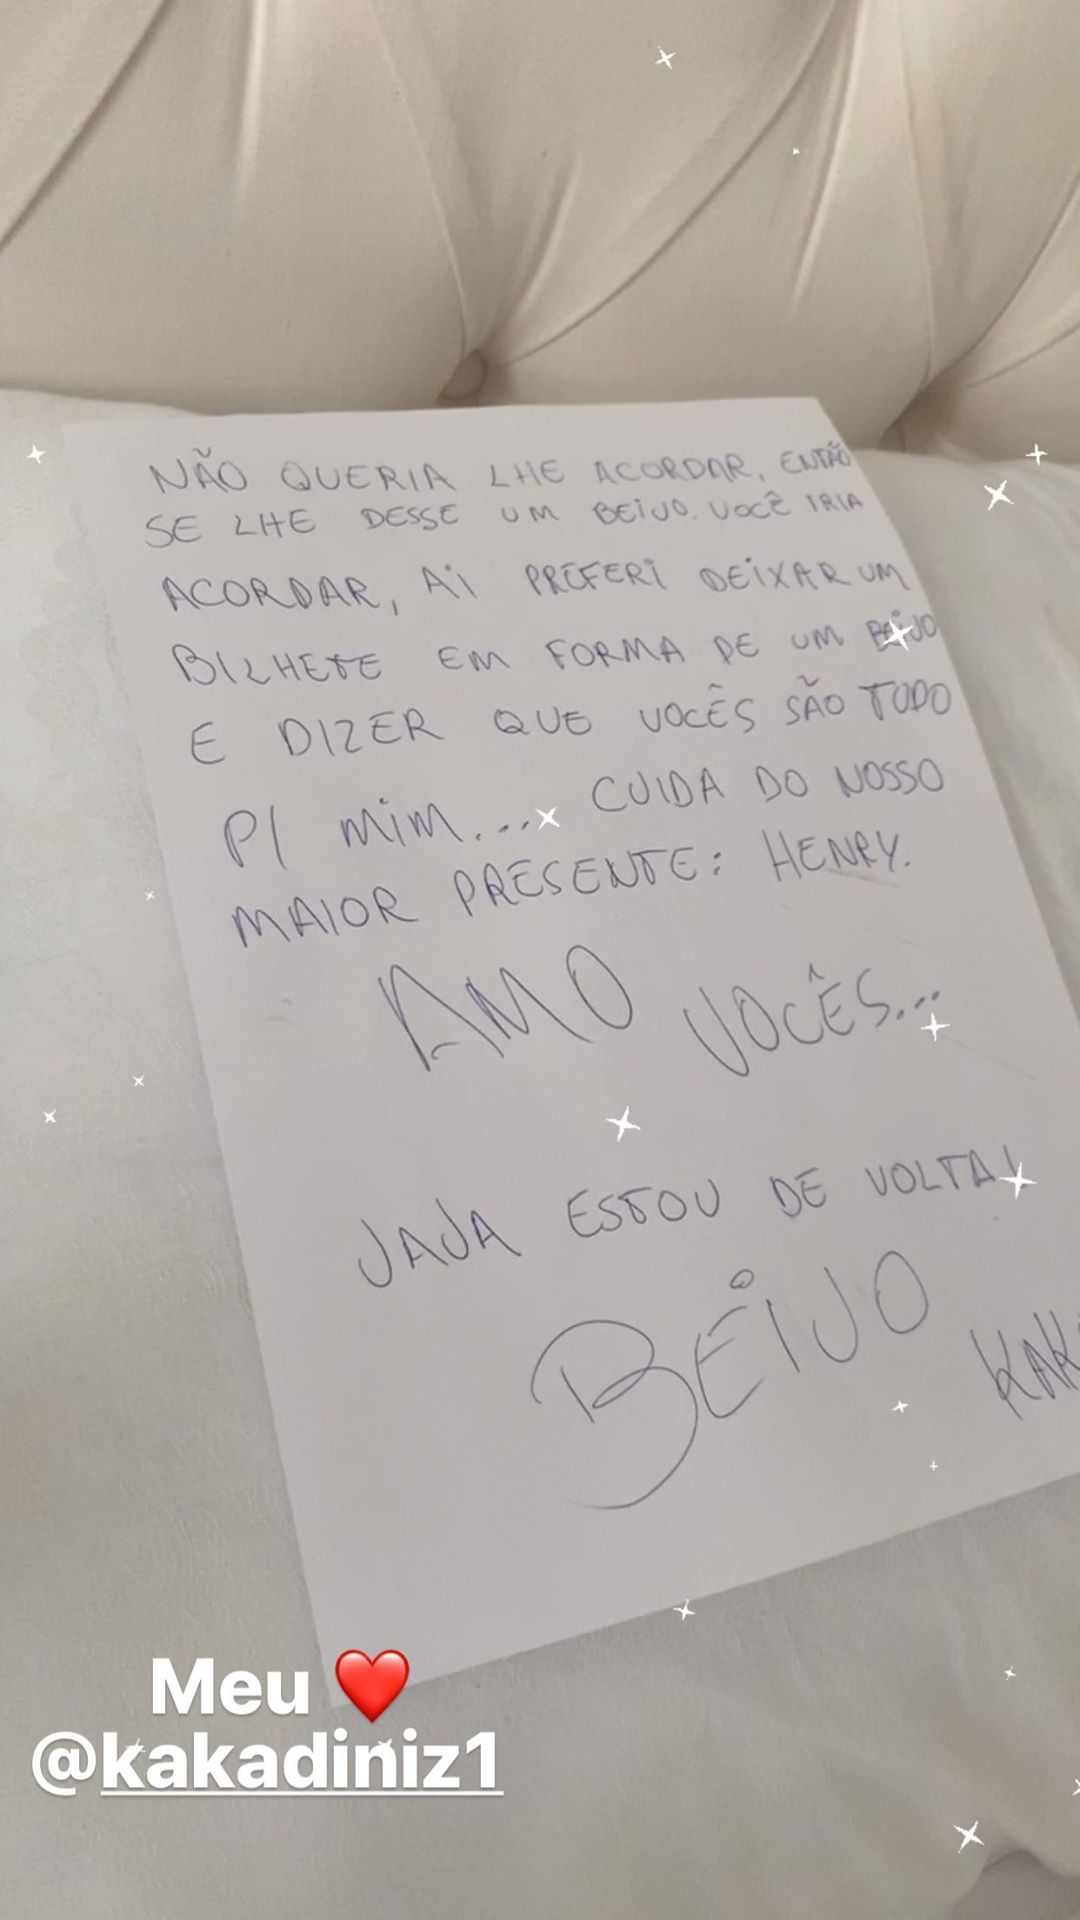 NÃO QUERIA LHE ACORDAR, ENTÃO
SE LHE DESSE UM BEIJO. VOCÊ IRIA
ACORDAR, AI PREFERI DEIXAR UM
BILHETE EM FORMA DE UM BEIJO
E DIZER QUE VOCÊS SÃO TUDO
P/ MIM.... CUIDA DO NOSSO
MAIOR PRESENTE: HENRY.
AMO VOCÊS...
JAJA ESTOU DE VOLTA!
BEIJO
KAK
Meu ❤️
@kakadiniz1